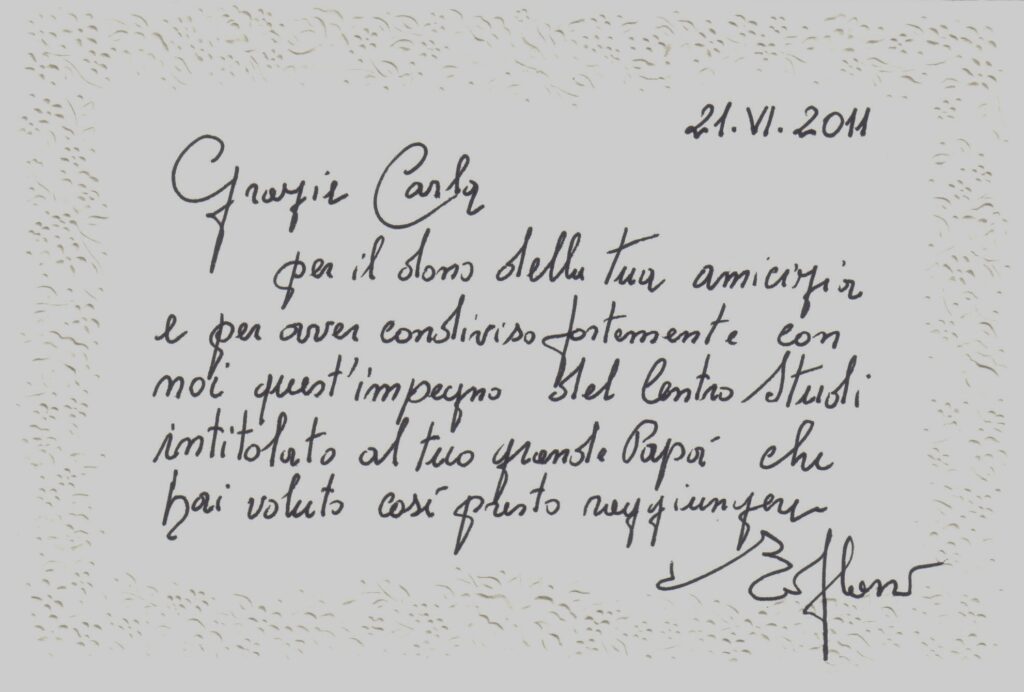 21.VI.2011
Grazie Carla
per il dono della tua amicizia
e per aver condiviso fortemente con
noi quest'impegno del Centro Studi
intitolato al tuo grande Papá che
hai voluto cosí presto raggiungere